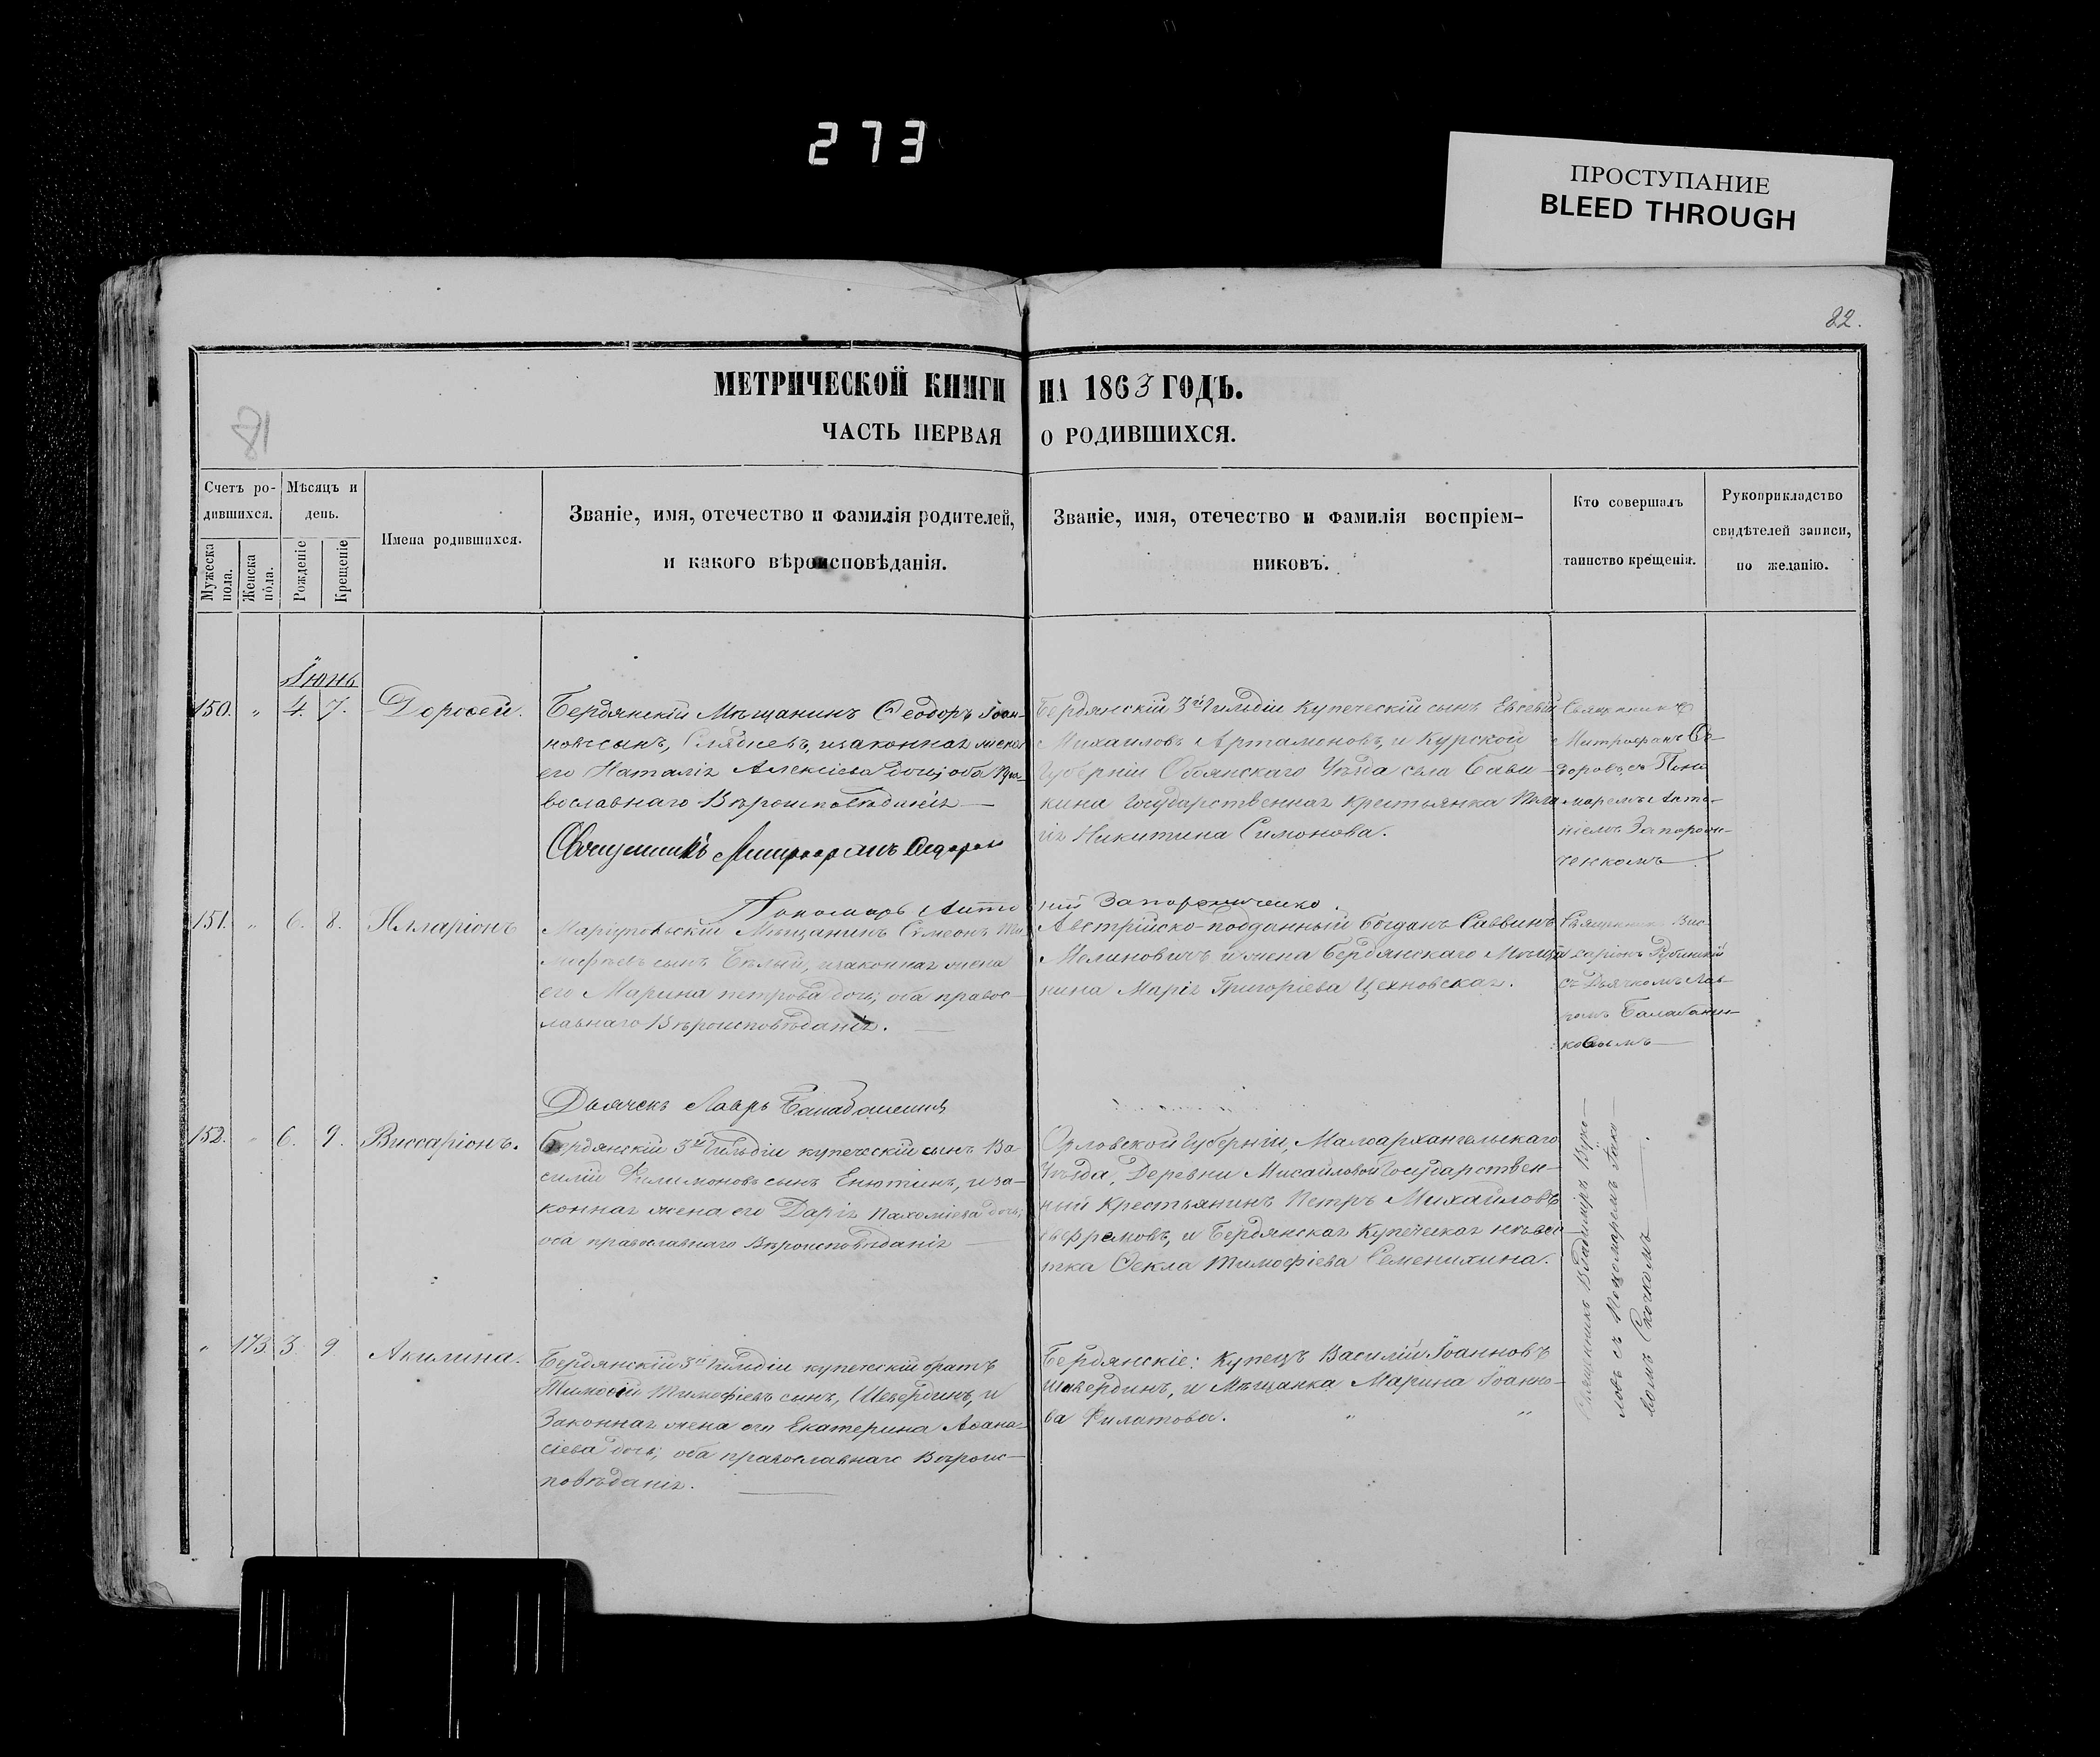 273
ПРОСТУПАНИЕ
BLEED THROUGH
82.
МЕТРИЧЕСКОЙ КНИГИ НА 1863 ГОДЪ.
81
ЧАСТЬ ПЕРВАЯ О РОДИВШИХСЯ.
Счетъ ро-
дившихся.
Мужеска пола.
Женска пола.
Мѣсяцъ и
день.
Рожденіе
Крещеніе
Имена родившихся.
Званіе, имя, отечество и фамилія родителей,
и какого вѣроисповѣданія.
Званіе, имя, отечество и фамилія воспріем-
никовъ.
Кто совершалъ
таинство крещенія.
Рукоприкладство
свидѣтелей записи,
по желанію.
Іюнь
150. " 4. 7. Дороѳей.
Бердянскій Мѣщанинъ Ѳеодоръ Іоан-
новъ сынъ, и законная жена
его Наталія Алексіева дочь; оба пра-
вославнаго Вѣроисповѣданія
Священникъ Митрофанъ
Бердянскій 3й Гильдіи Купеческій сынъ Евсевій
Михаиловъ Артамоновъ, и Курской
Губерніи Обоянскаго Уѣзда села Сави-
кина Государственная Крестьянка Пела
гія Никитина Симонова.
Священникъ
Митрофанъ Ѳе-
доровъ съ Поно
маремъ Анто-
ніемъ Запорож-
ченкомъ
Пономарь Антоній Запорожченко.
151. " 6. 8. Илларіонъ
Маріупольскій Мѣщанинъ Симеонъ Ти
мофѣевъ сынъ Бѣлый, и законная жена
его Марина Петрова дочь; оба правос-
лавнаго Вѣроисповѣданія.
Австрійско-подданный Богданъ Саввинъ
Мелиновичъ и жена Бердянскаго Мѣща
нина Марія Григоріева Цехновская.
Священникъ Вис
саріонъ
съ Дьячкомъ Лав-
ромъ Балабани-
ковымъ
Дьячекъ Лавръ
152. " 6. 9. Виссаріонъ.
Бердянскій 3й Гильдіи купеческій сынъ Ва
силій Филимоновъ сынъ Енютинъ, и за-
конная жена его Дарія Пахоміева дочь;
оба православнаго Вѣроисповѣданія
Орловской Губерніи, Малоархангельскаго
Уѣзда, Деревни Мисайловой Государствен-
ный Крестьянинъ Петръ Михайловъ
Ефремовъ, и Бердянская Купеческая невѣс
тка Ѳекла Тимофіева Семенихина.
Священникъ Владиміръ
ловъ съ Пономаремъ
вомъ
" 173 3 9 Акилина.
Бердянскій 3й Гильдіи купеческій братъ
Тимоѳій Тимофіевъ сынъ, Шевердинъ, и
Законная жена его Екатерина Аѳана-
сіева дочь; оба православнаго Вѣроис-
повѣданія.
Бердянскіе: Купецъ Василій Іоанновъ
Шевердинъ, и Мѣщанка Марина Іоанно-
ва Филатова. " "